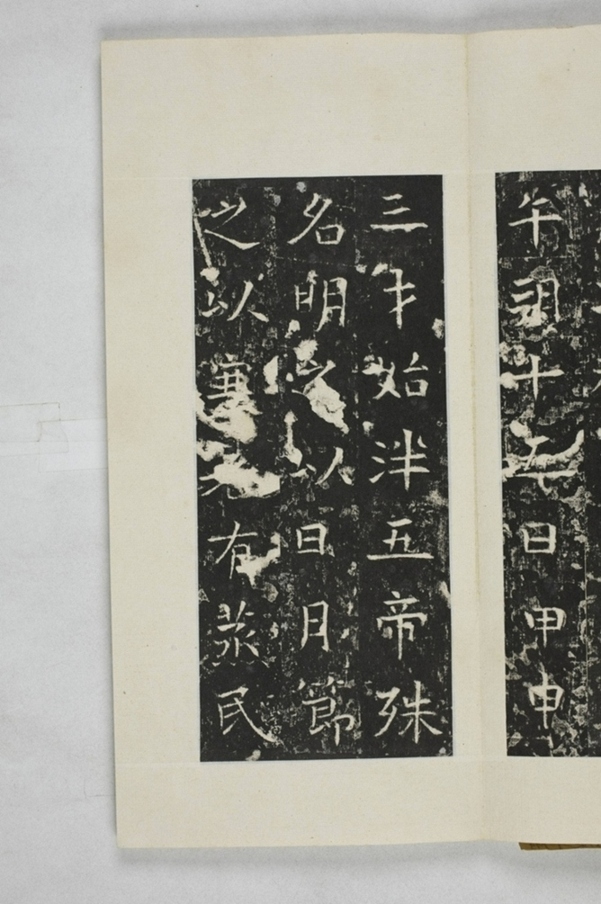 午朔十五日甲申
三才始泮五帝殊
名明之以日月節
之以寒暑有蒸民